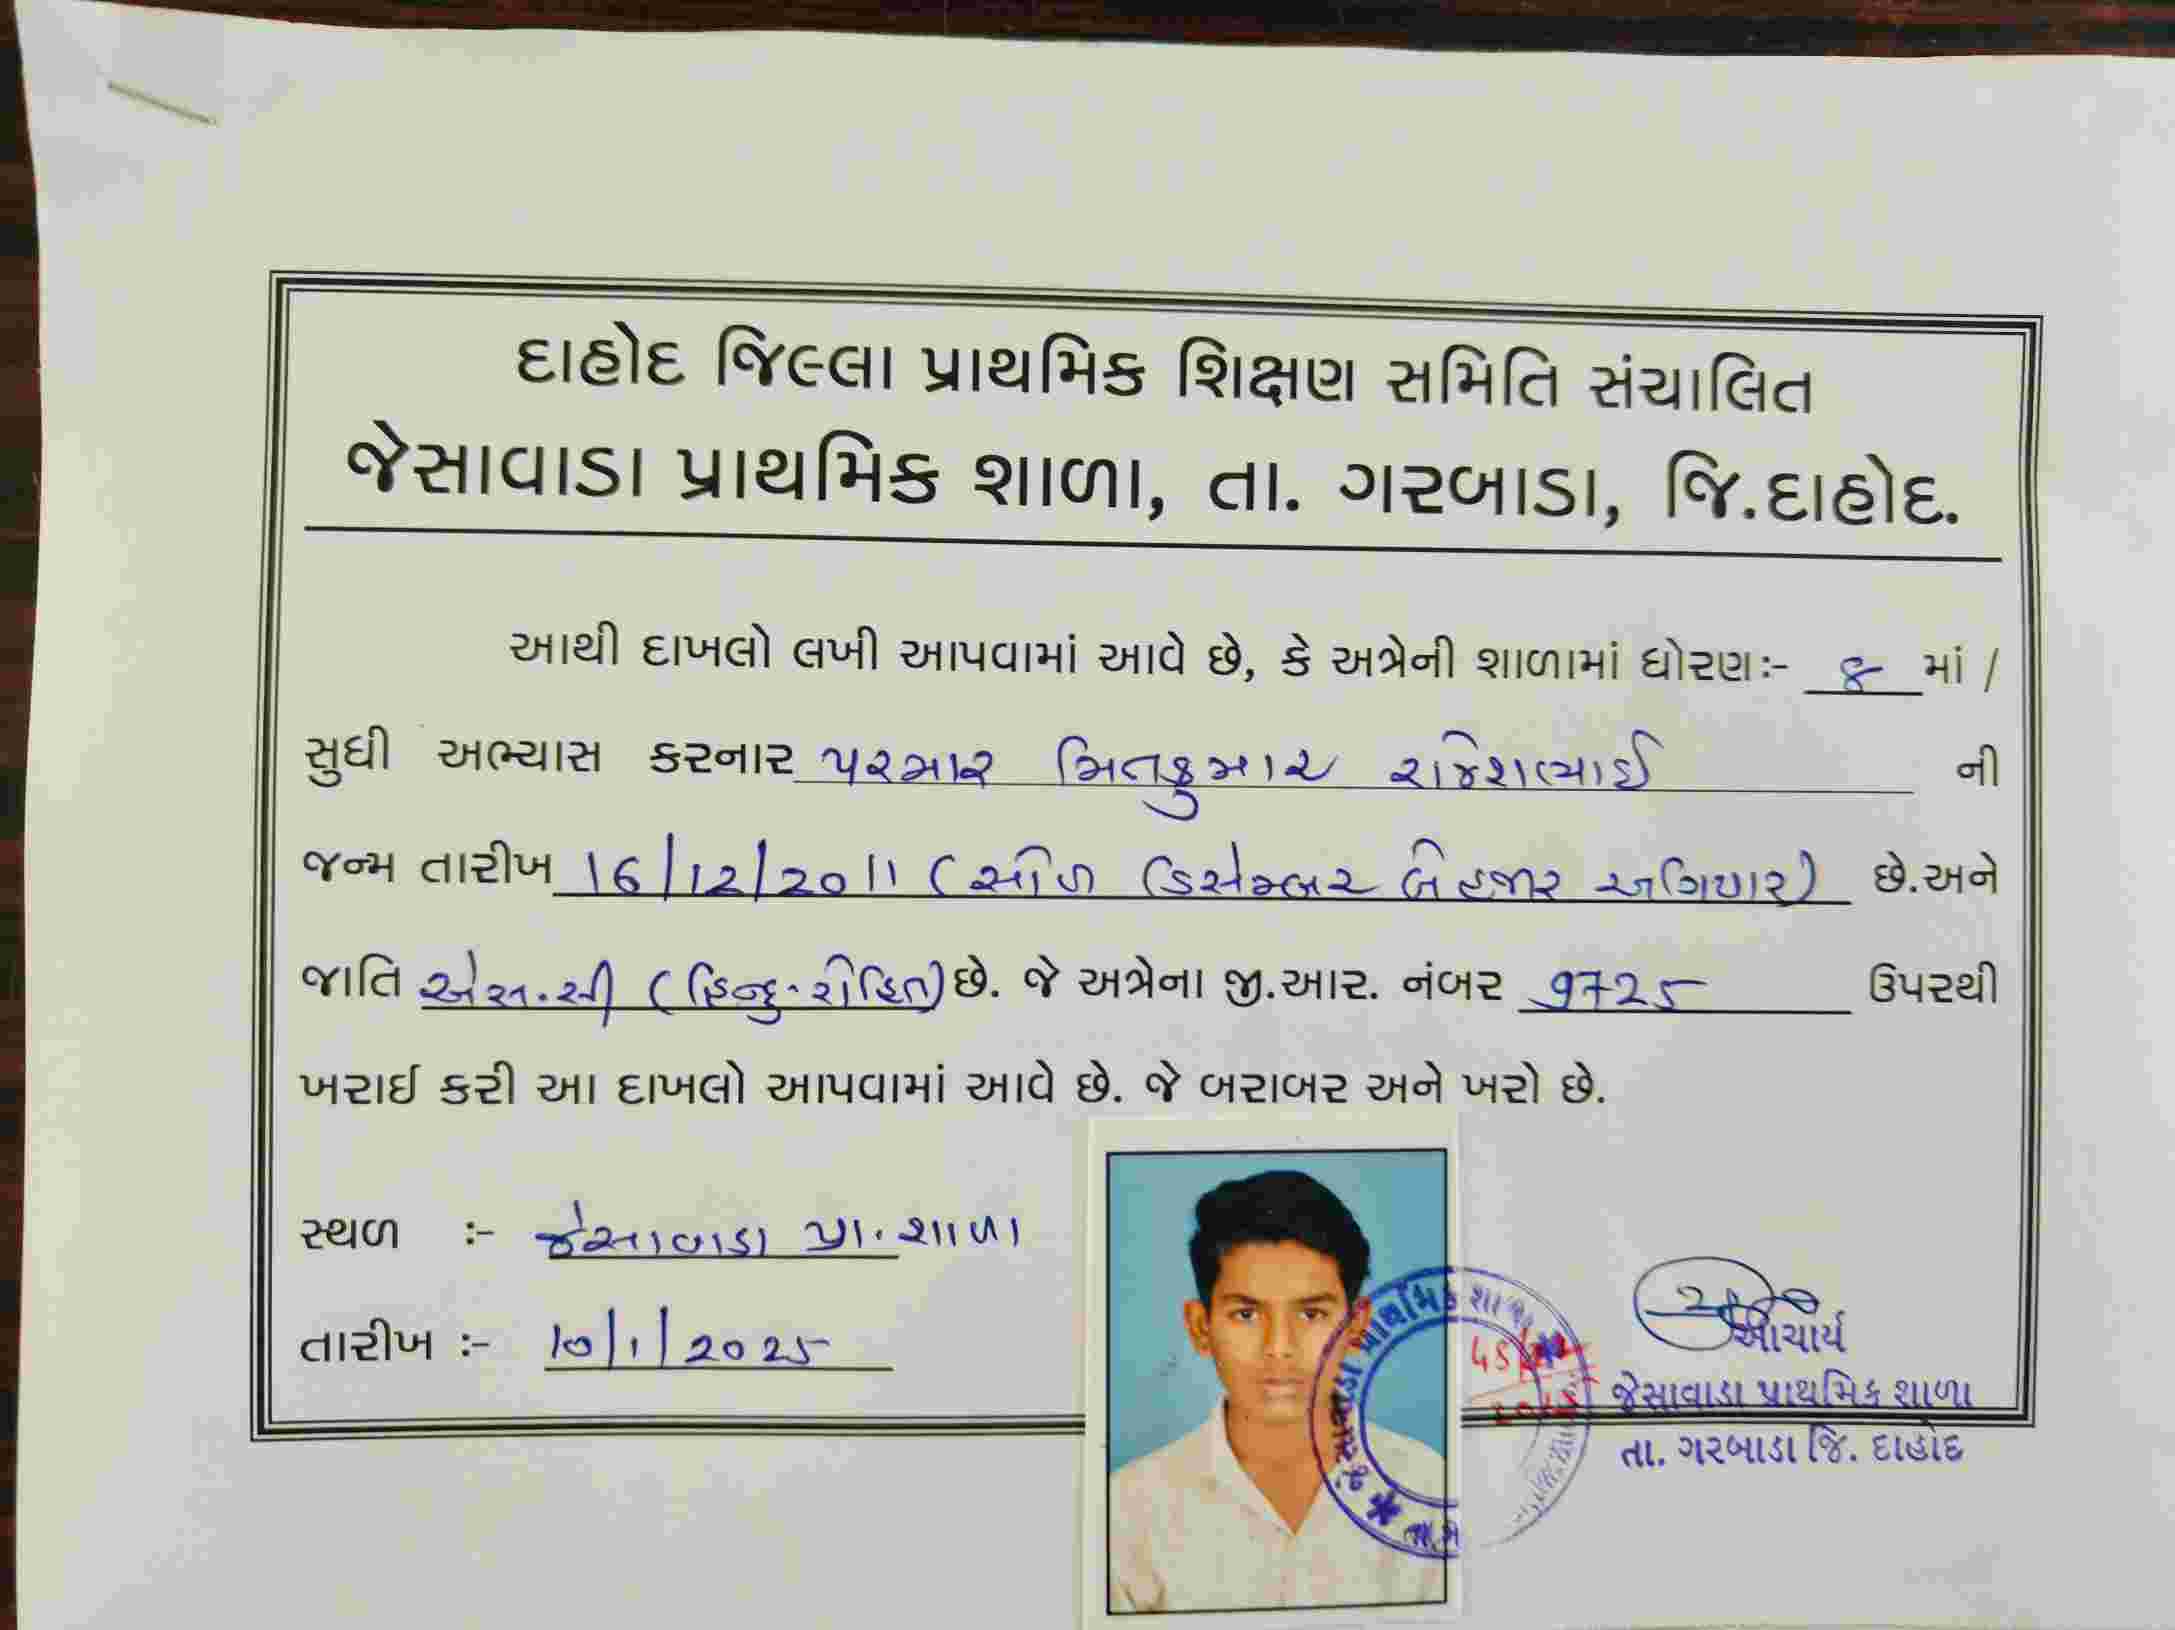 દાહોદ જિલ્લા પ્રાથમિક શિક્ષણ સમિતિ સંચાલિત
જેસાવાડા પ્રાથમિક શાળા, તા. ગરબાડા, જિ.દાહોદ.
આથી દાખલો લખી આપવામાં આવે છે, કે અત્રેની શાળામાં ધોરણઃ- ૪ માં /
સુધી અભ્યાસ કરનાર પરમાર મિતકુમાર રાજેશભાઈ ની
જન્મ તારીખ 16/12/2011 (સોળ ડિસેમ્બર બેહજાર અગિયાર) છે.અને
જાતિ એસ.સી (હિન્દુ-રોહિત) છે. જે અત્રેના જી.આર. નંબર 9725 ઉપરથી
ખરાઈ કરી આ દાખલો આપવામાં આવે છે. જે બરાબર અને ખરો છે.
સ્થળ :- જેસાવાડા પ્રા. શાળા
તારીખ :- 10/1/2025
જેસાવાડા પ્રાથમિક શાળા
આચાર્ય
જેસાવાડા પ્રાથમિક શાળા
તા. ગરબાડા જિ. દાહોદ